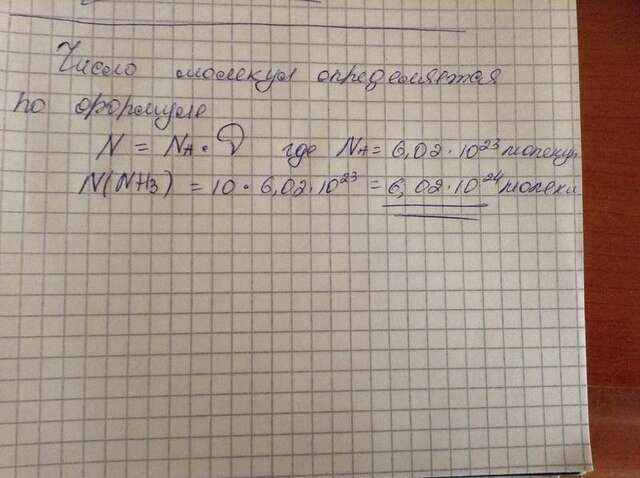 Число молекул определяется
по формуле
N = NA · ν где NA = 6,02 · 10²³ молекул
N(NH3) = 10 · 6,02 · 10²³ = 6,02 · 10²⁴ молекул